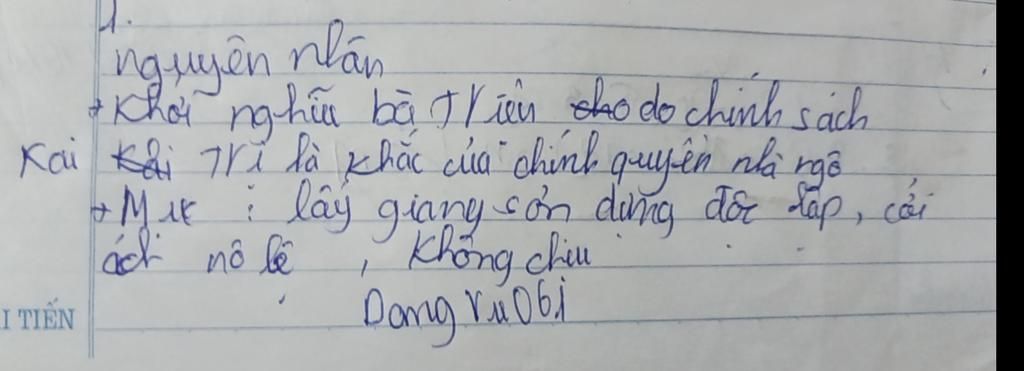 1.
nguyên nhân
+ Khởi nghĩa bà Triệu cho do chính sách
Kai Kai Trị là khắc của chính quyền nhà ngô
+ Mục : lấy giang sơn dựng độc lập, cởi
ách nô lệ , không chịu
Dang ruobi
I TIẾN